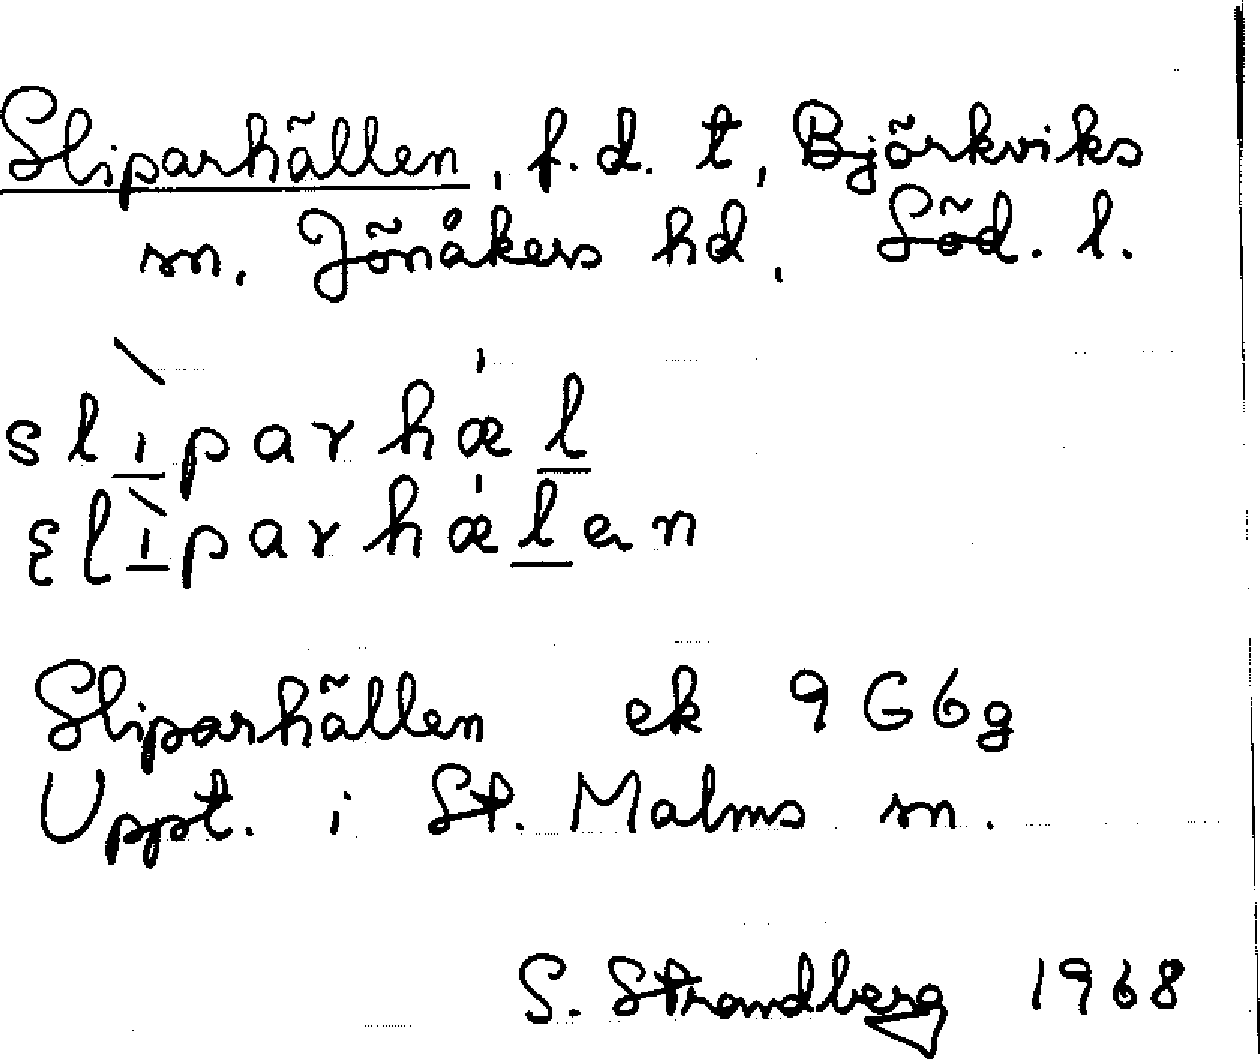 Sliparhällen, f.d. t, Björkviks
sn. Jönåkers hd, Söd. l.
slìparhæ̍l
slìparhæ̍len
Sliparhällen ek 9G6g
Uppt. i St. Malms sn.
S. Strandberg 1968